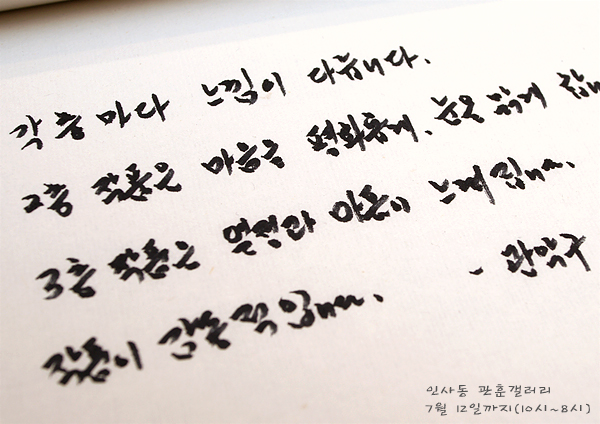 각 층마다 느낌이 다릅니다.
2층 작품은 마음을 평화롭게. 눈을 맑게 합니
3층 작품은 열정과 아픔이 느껴집니다.
작품이 감동적입니다. - 관악구
인사동 관훈갤러리
7월 12일까지(10시~8시)